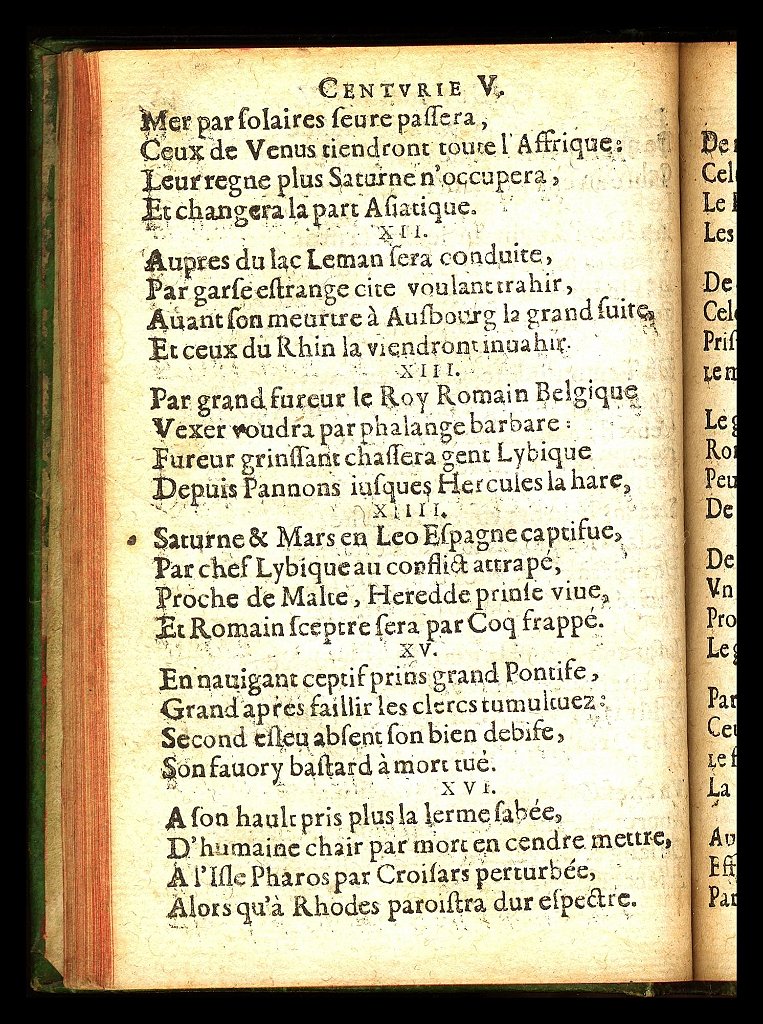 CENTVRIE V.
Mer par ſolaires ſeure paſſera,
Ceux de Venus tiendront toute l'Affrique:
Leur regne plus Saturne n'occupera,
Et changera la part Aſiatique.
XII.
Aupres du lac Leman ſera conduite,
Par garſe eſtrange cite voulant trahir,
Auant ſon meurtre à Auſbourg la grand ſuite,
Et ceux du Rhin la viendront inuahir.
XIII.
Par grand fureur le Roy Romain Belgique
Vexer voudra par phalange barbare:
Fureur grinſſant chaſſera gent Lybique
Depuis Pannons iuſques Hercules la hare,
XIIII.
Saturne & Mars en Leo Eſpagne captifue,
Par chef Lybique au conflict attrapé,
Proche de Malte, Heredde prinſe viue,
Et Romain ſceptre ſera par Coq frappé.
XV.
En nauigant ceptif prins grand Pontife,
Grand apres faillir les clercs tumultuez:
Second eſleu abſent ſon bien debife,
Son fauory baſtard à mort tué.
XVI.
A ſon hault pris plus la lerme ſabée,
D'humaine chair par mort en cendre mettre,
A l'Iſle Pharos par Croiſars perturbée,
Alors qu'à Rhodes paroiſtra dur eſpectre.
De
Cel
Le
Les
De
Cel
Priſ
Le
Ro
Peu
De
De
Vn
Pro
Le
Par
Ceu
Le
La
Au
Eff
Par